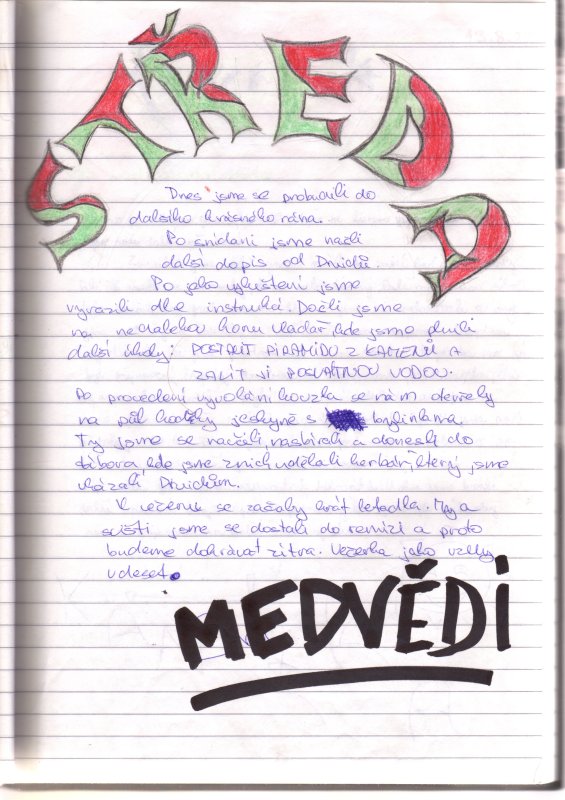 STŘEDA
Dnes jsme se probudili do
dalšího krásného rána.
Po snídani jsme našli
další dopis od Druidů.
Po jeho vyluštění jsme
vyrazili dle instrukcí. Došli jsme
na nedalekou horu Vladař, kde jsme plnili
další úkoly: POSTAVIT PIRAMIDU Z KAMENŮ A
ZALÍT JI POSVÁTNOU VODOU.
Po provedení vyvolání kouzla se nám otevřely
na půl hodinky jeskyně s bylinkama.
Ty jsme se naučili, nasbírali a donesli do
tábora, kde jsme z nich udělali herbář, který jsme
ukázali Druidům.
K večeru se začaly hrát letadla. My a
jsme se dostali do remízi a proto
budeme dohrávat zítra. Večerka jako vždy
v deset.
MEDVĚDI